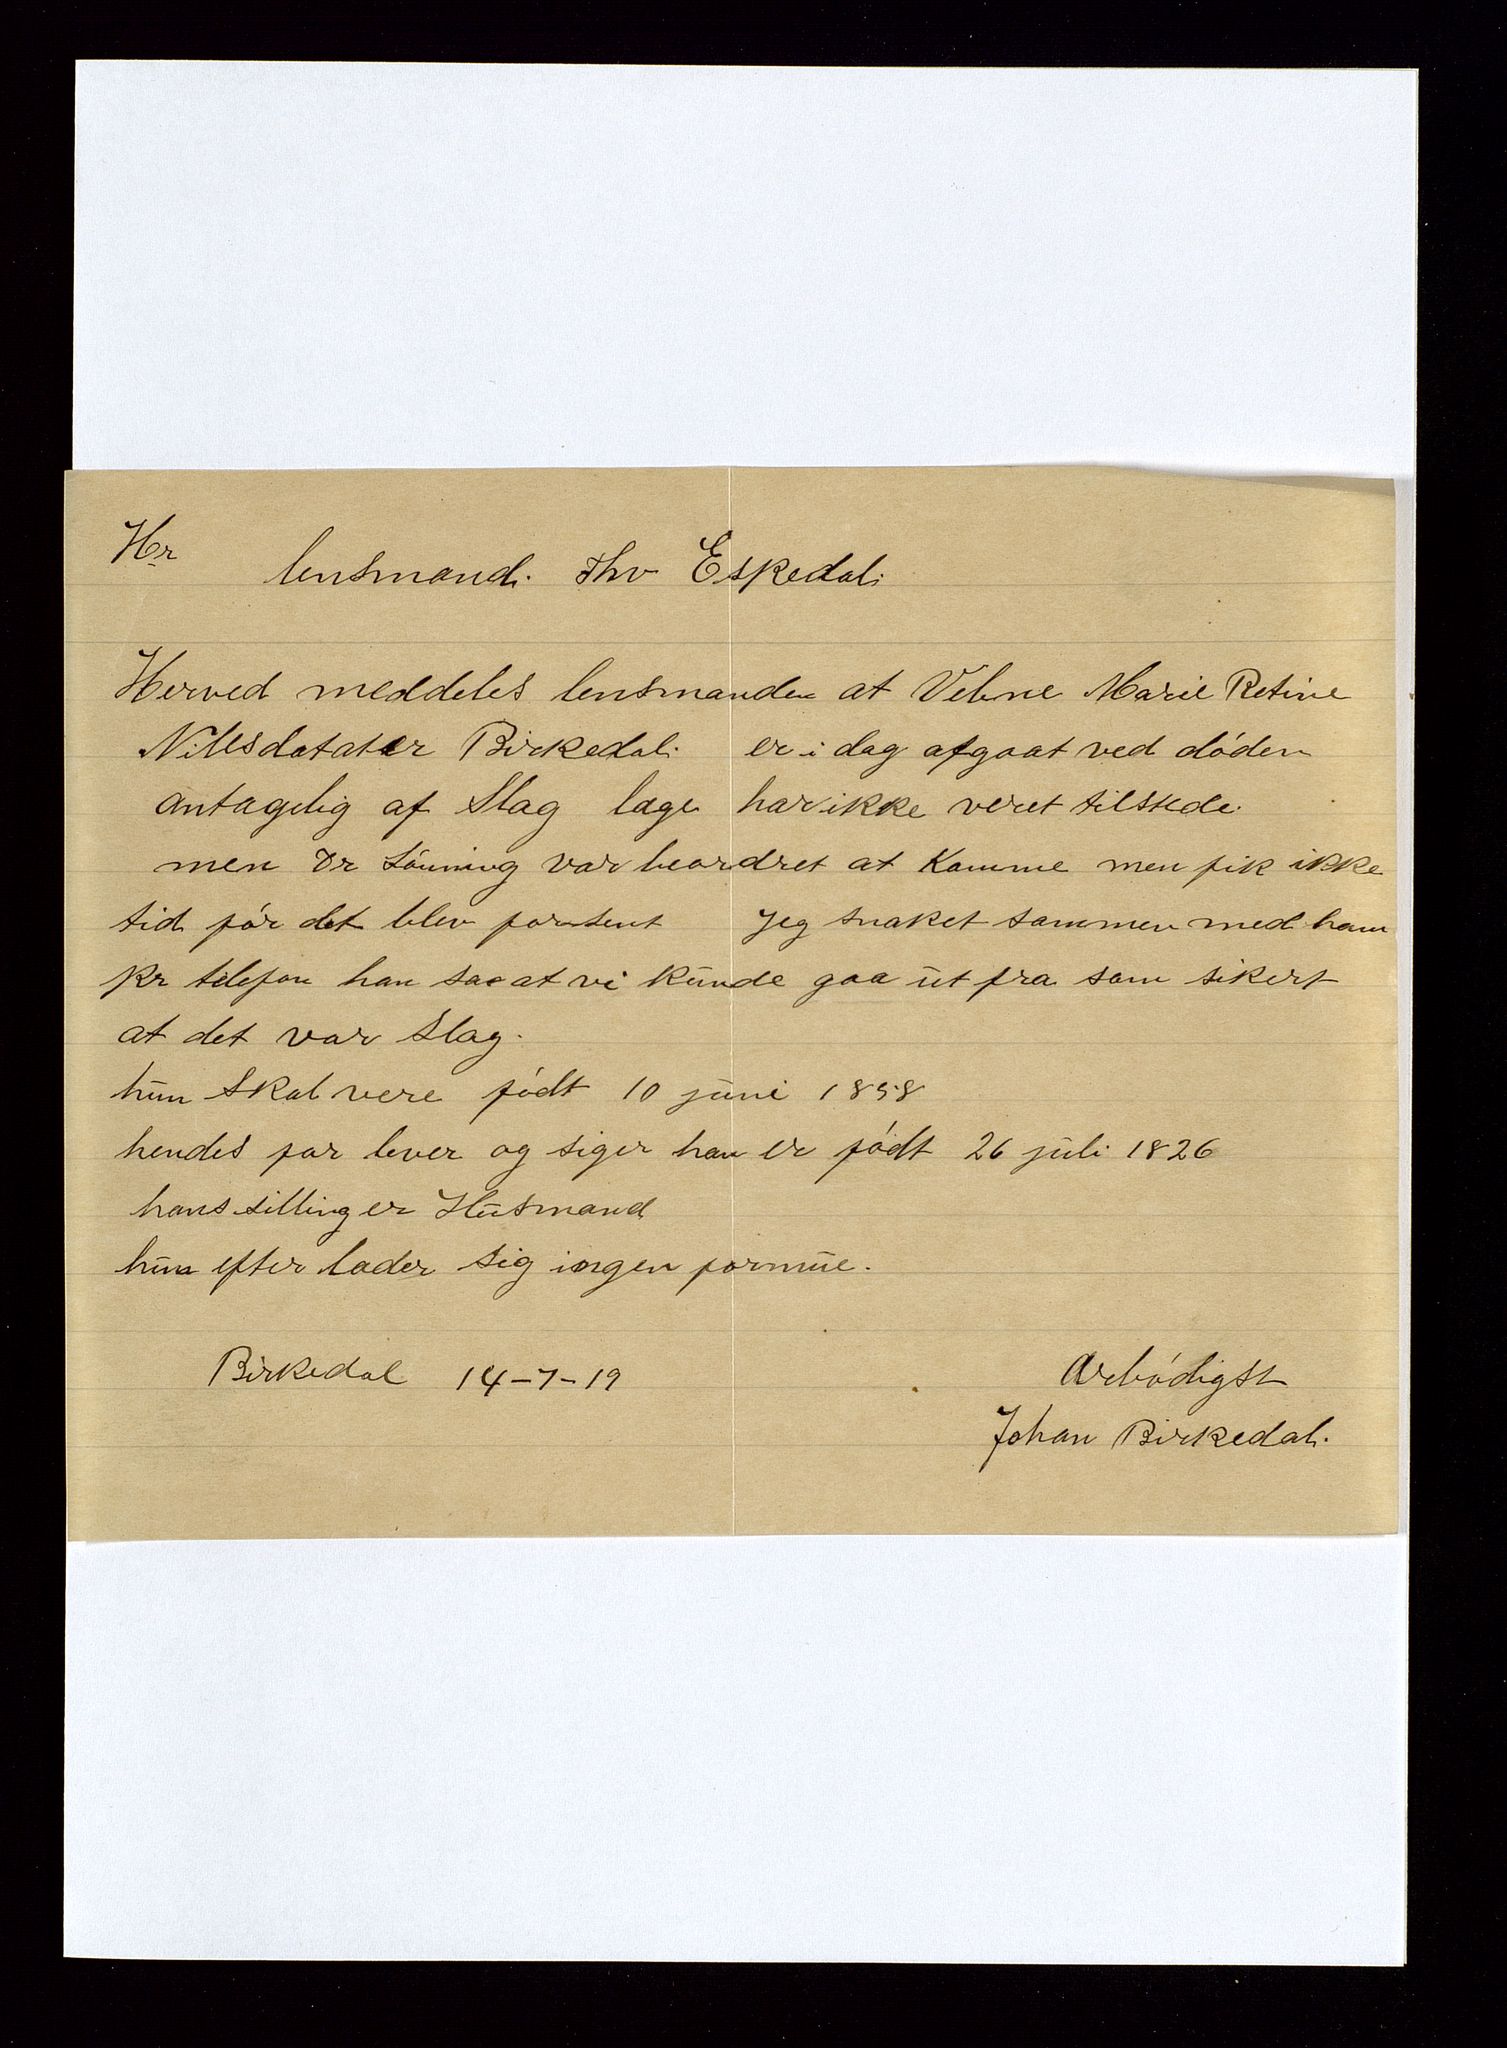 Hr
lensmand. Thv Eskedal.
Herved meddeles lensmanden at Veline Marie Retine
Nilesdatater Birkedal. er i dag afgaat ved döden
antagelig af Slag læge har ikke veret tilstede.
men Dr Löuning var beordret at Komme men fik ikke
tid för det blev forsent Jeg snaket sammen med ham
pr telefon han sae at vi kunde gaa ut fra som sikert
at det var Slag.
hun skal vere födt 10 juni 1858
hendes far lever og siger han er födt 26 juli 1826
hans silling er Husmand
hun efter lader sig ingen formue.
Birkedal 14-7-19
Arbödigst
Johan Birkedal.